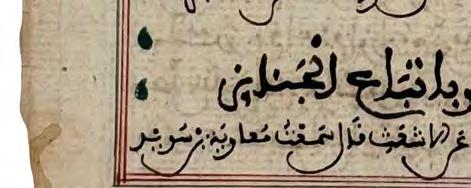 باتباع الجنايز
عن الاشعث قال سمعت معاوية بن سويد